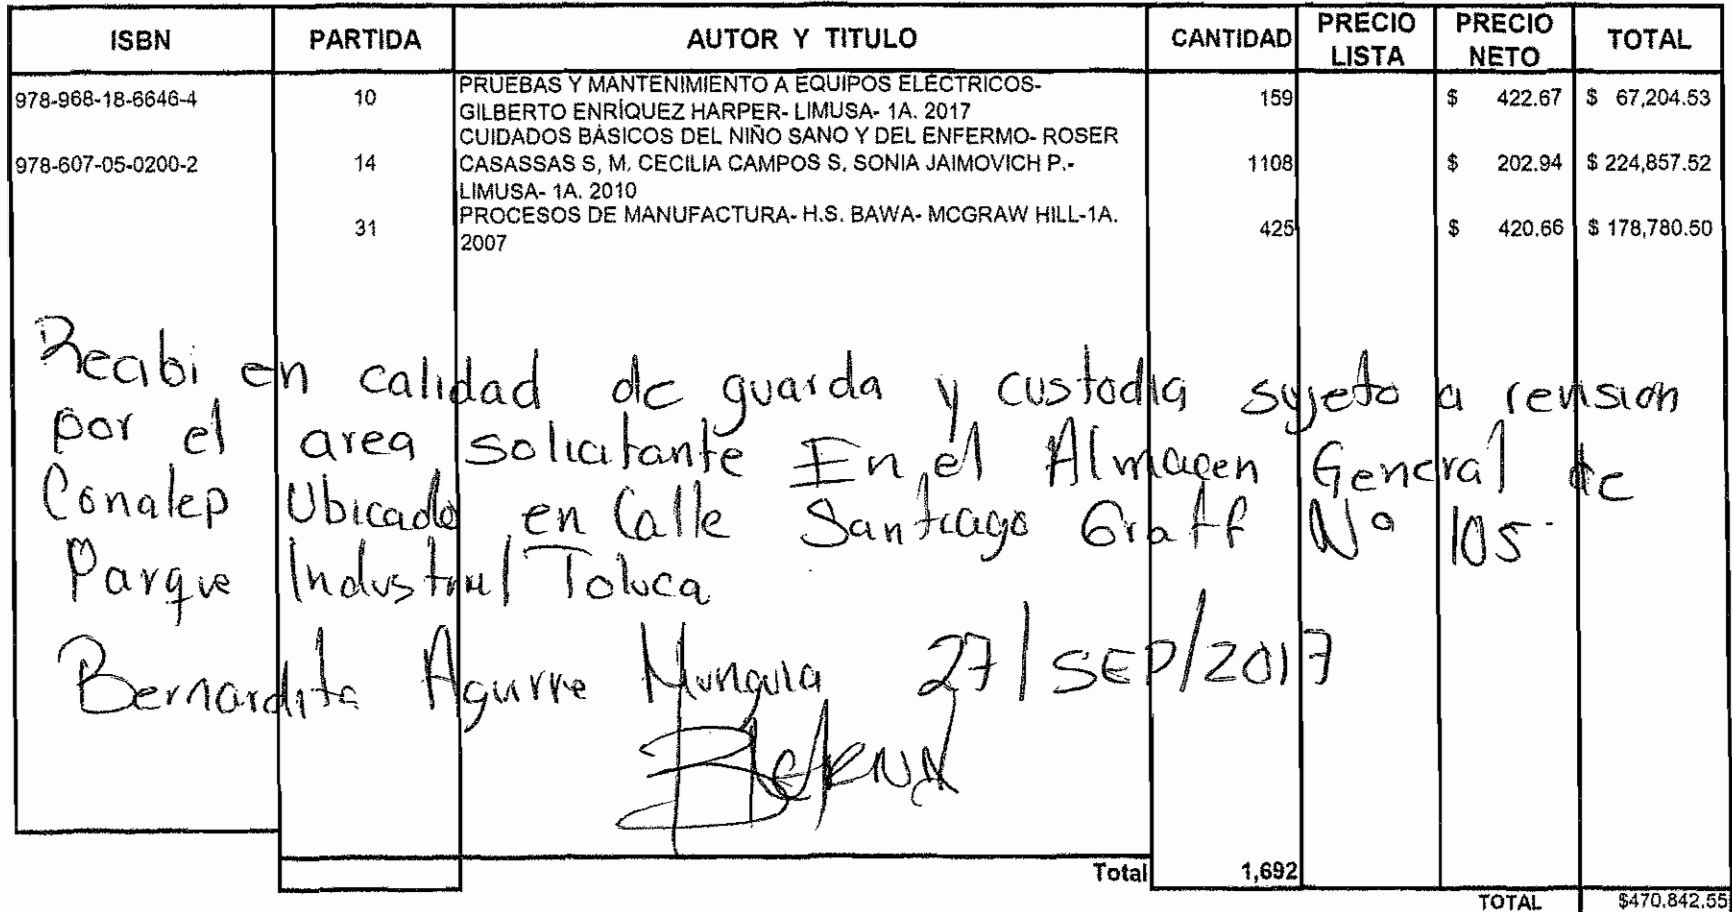 ISBN PARTIDA AUTOR Y TITULO CANTIDAD PRECIO LISTA PRECIO NETO TOTAL
978-968-18-6646-4 10 PRUEBAS Y MANTENIMIENTO A EQUIPOS ELÉCTRICOS- 159 $ 422.67 $ 67,204.53
GILBERTO ENRÍQUEZ HARPER- LIMUSA- 1A. 2017
CUIDADOS BÁSICOS DEL NIÑO SANO Y DEL ENFERMO- ROSER
978-607-05-0200-2 14 CASASSAS S, M. CECILIA CAMPOS S. SONIA JAIMOVICH P.- 1108 $ 202.94 $ 224,857.52
LIMUSA- 1A. 2010
PROCESOS DE MANUFACTURA- H.S. BAWA- MCGRAW HILL-1A.
31 2007 425 $ 420.66 $ 178,780.50
Recibi en calidad de guarda y custodia sujeto a revision
por el area solicitante En el Almacen General de
Conalep Ubicado en Calle Santiago Graff Nº 105
Parque Industrial Toluca
Bernardita Aguirre Munguia 27/SEP/2017
Total 1,692
TOTAL $470,842.55